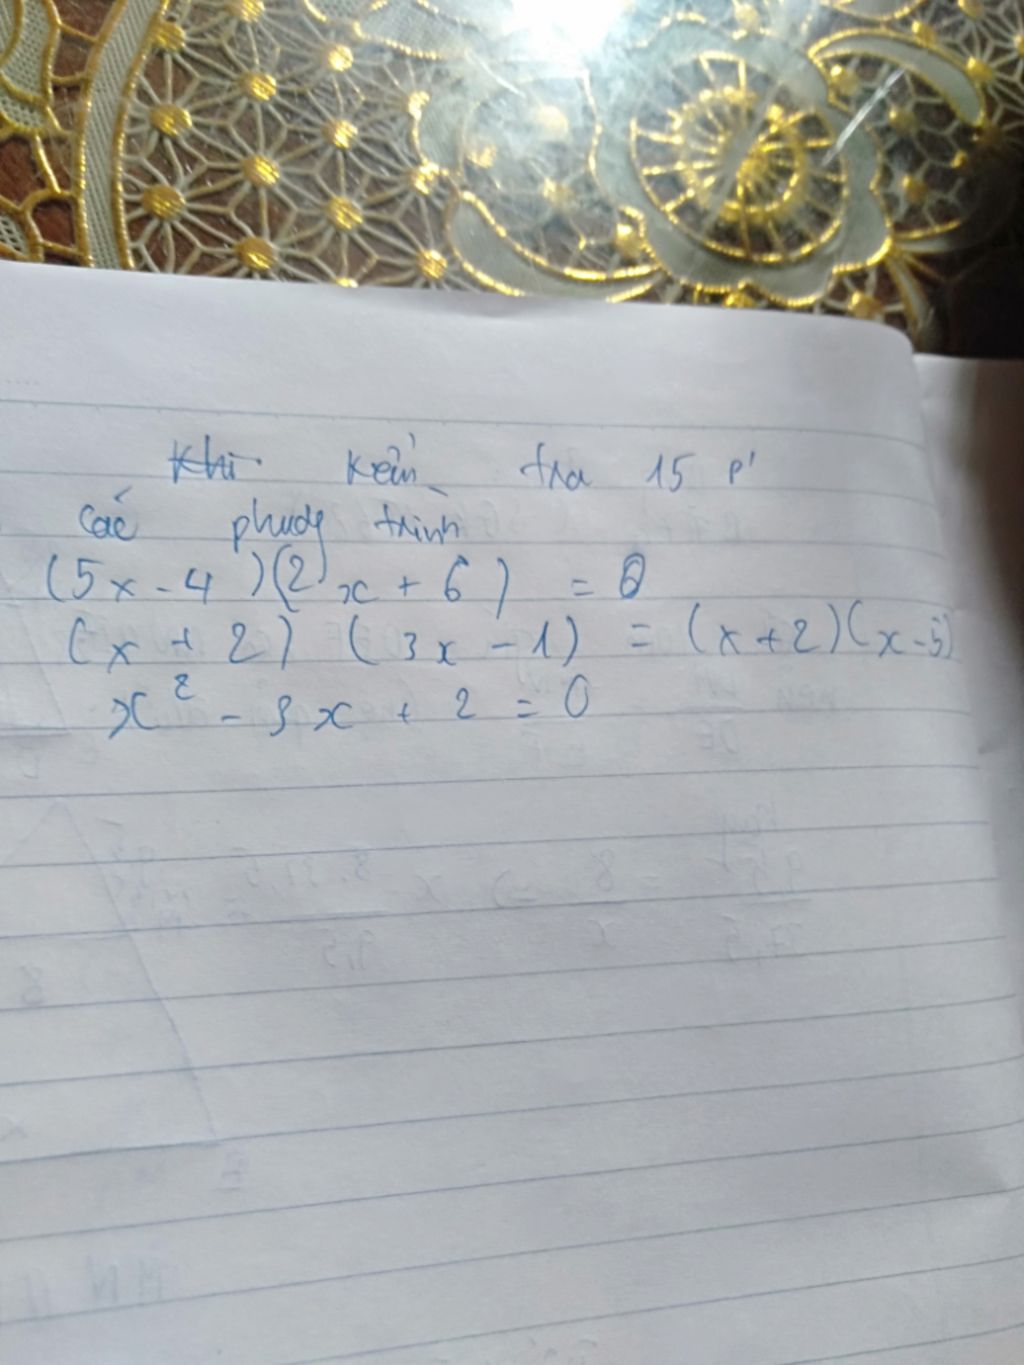 Khi kểm tra 15 p'
các phương trình
(5x - 4)(2x + 6) = 0
(x + 2) (3x - 1) = (x + 2)(x - 5)
x² - 3x + 2 = 0